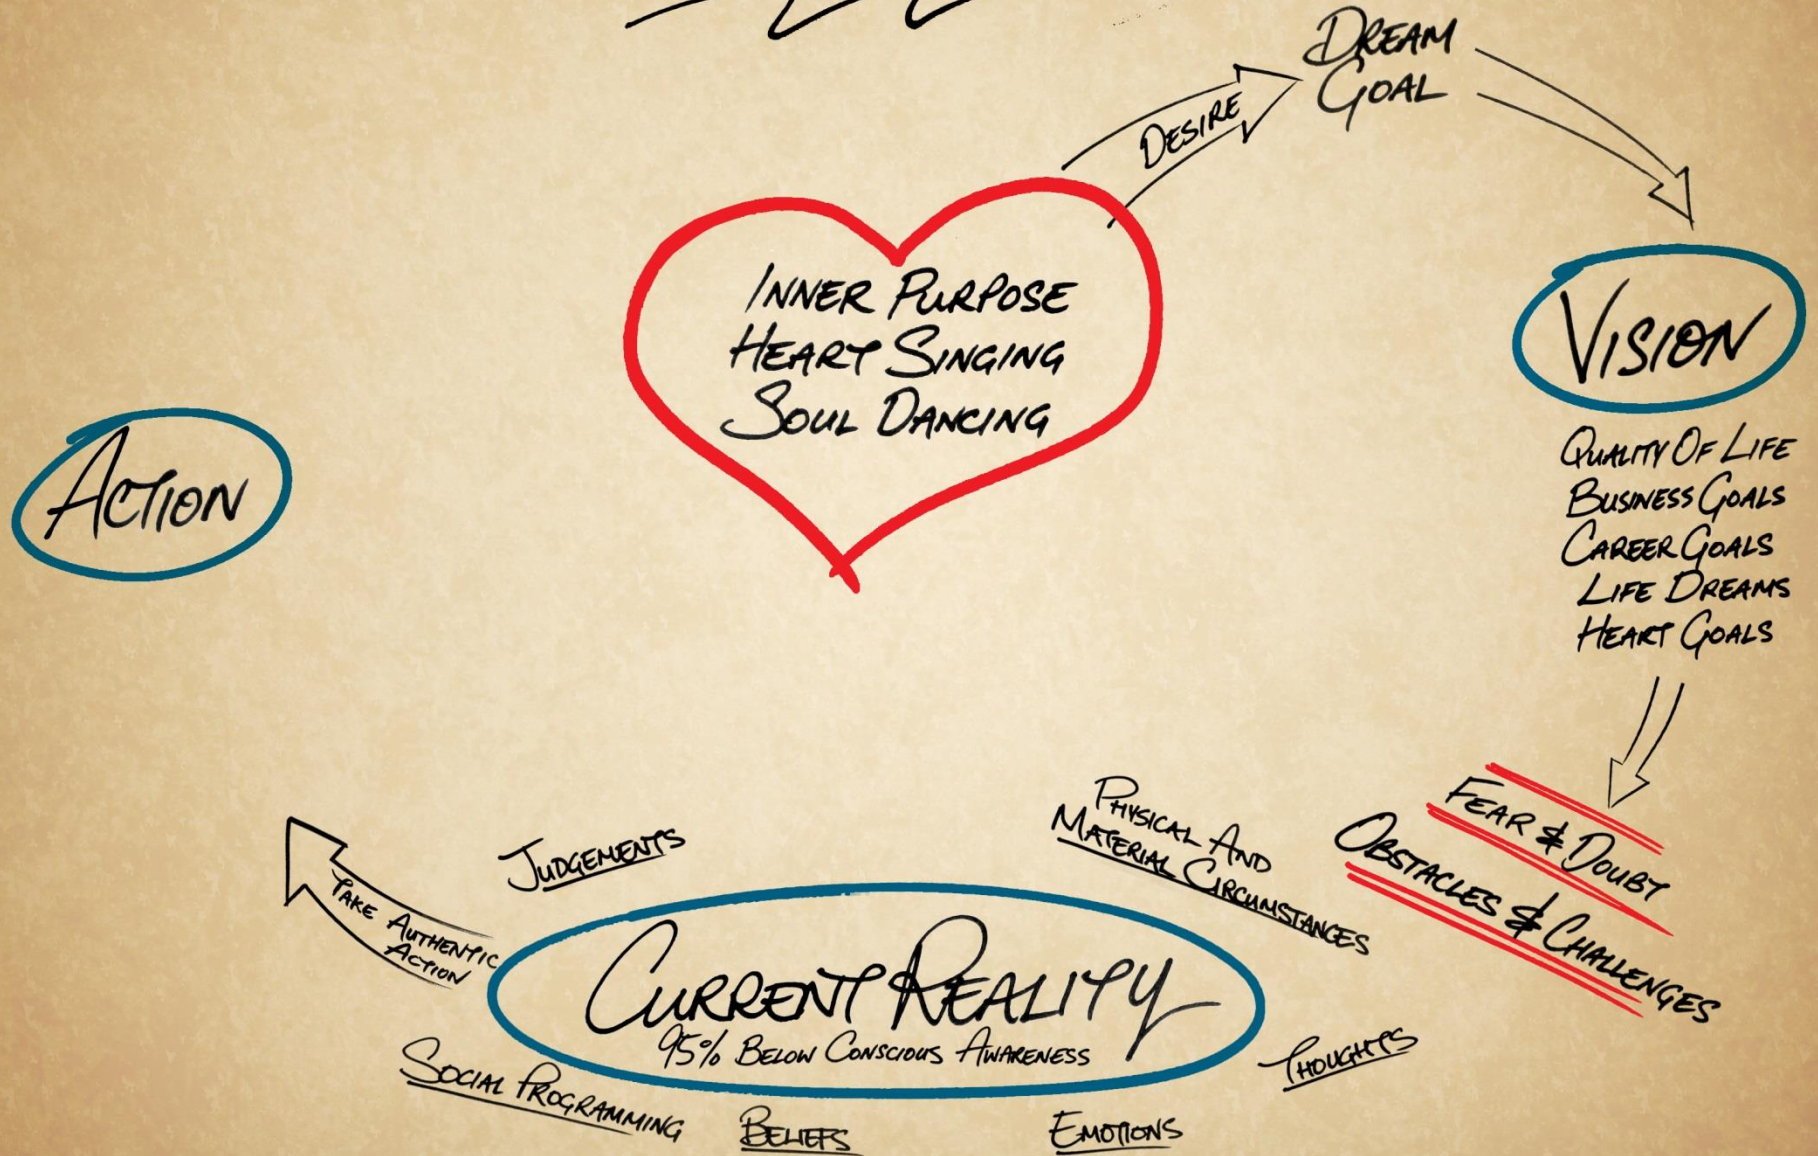 DREAM
GOAL
DESIRE
INNER PURPOSE
HEART SINGING
SOUL DANCING
VISION
QUALITY OF LIFE
BUSINESS GOALS
CAREER GOALS
LIFE DREAMS
HEART GOALS
ACTION
FEAR & DOUBT
OBSTACLES & CHALLENGES
PHYSICAL AND
MATERIAL CIRCUMSTANCES
JUDGEMENTS
TAKE AUTHENTIC
ACTION
CURRENT REALITY
95% BELOW CONSCIOUS AWARENESS
THOUGHTS
SOCIAL PROGRAMMING
BELIEFS
EMOTIONS